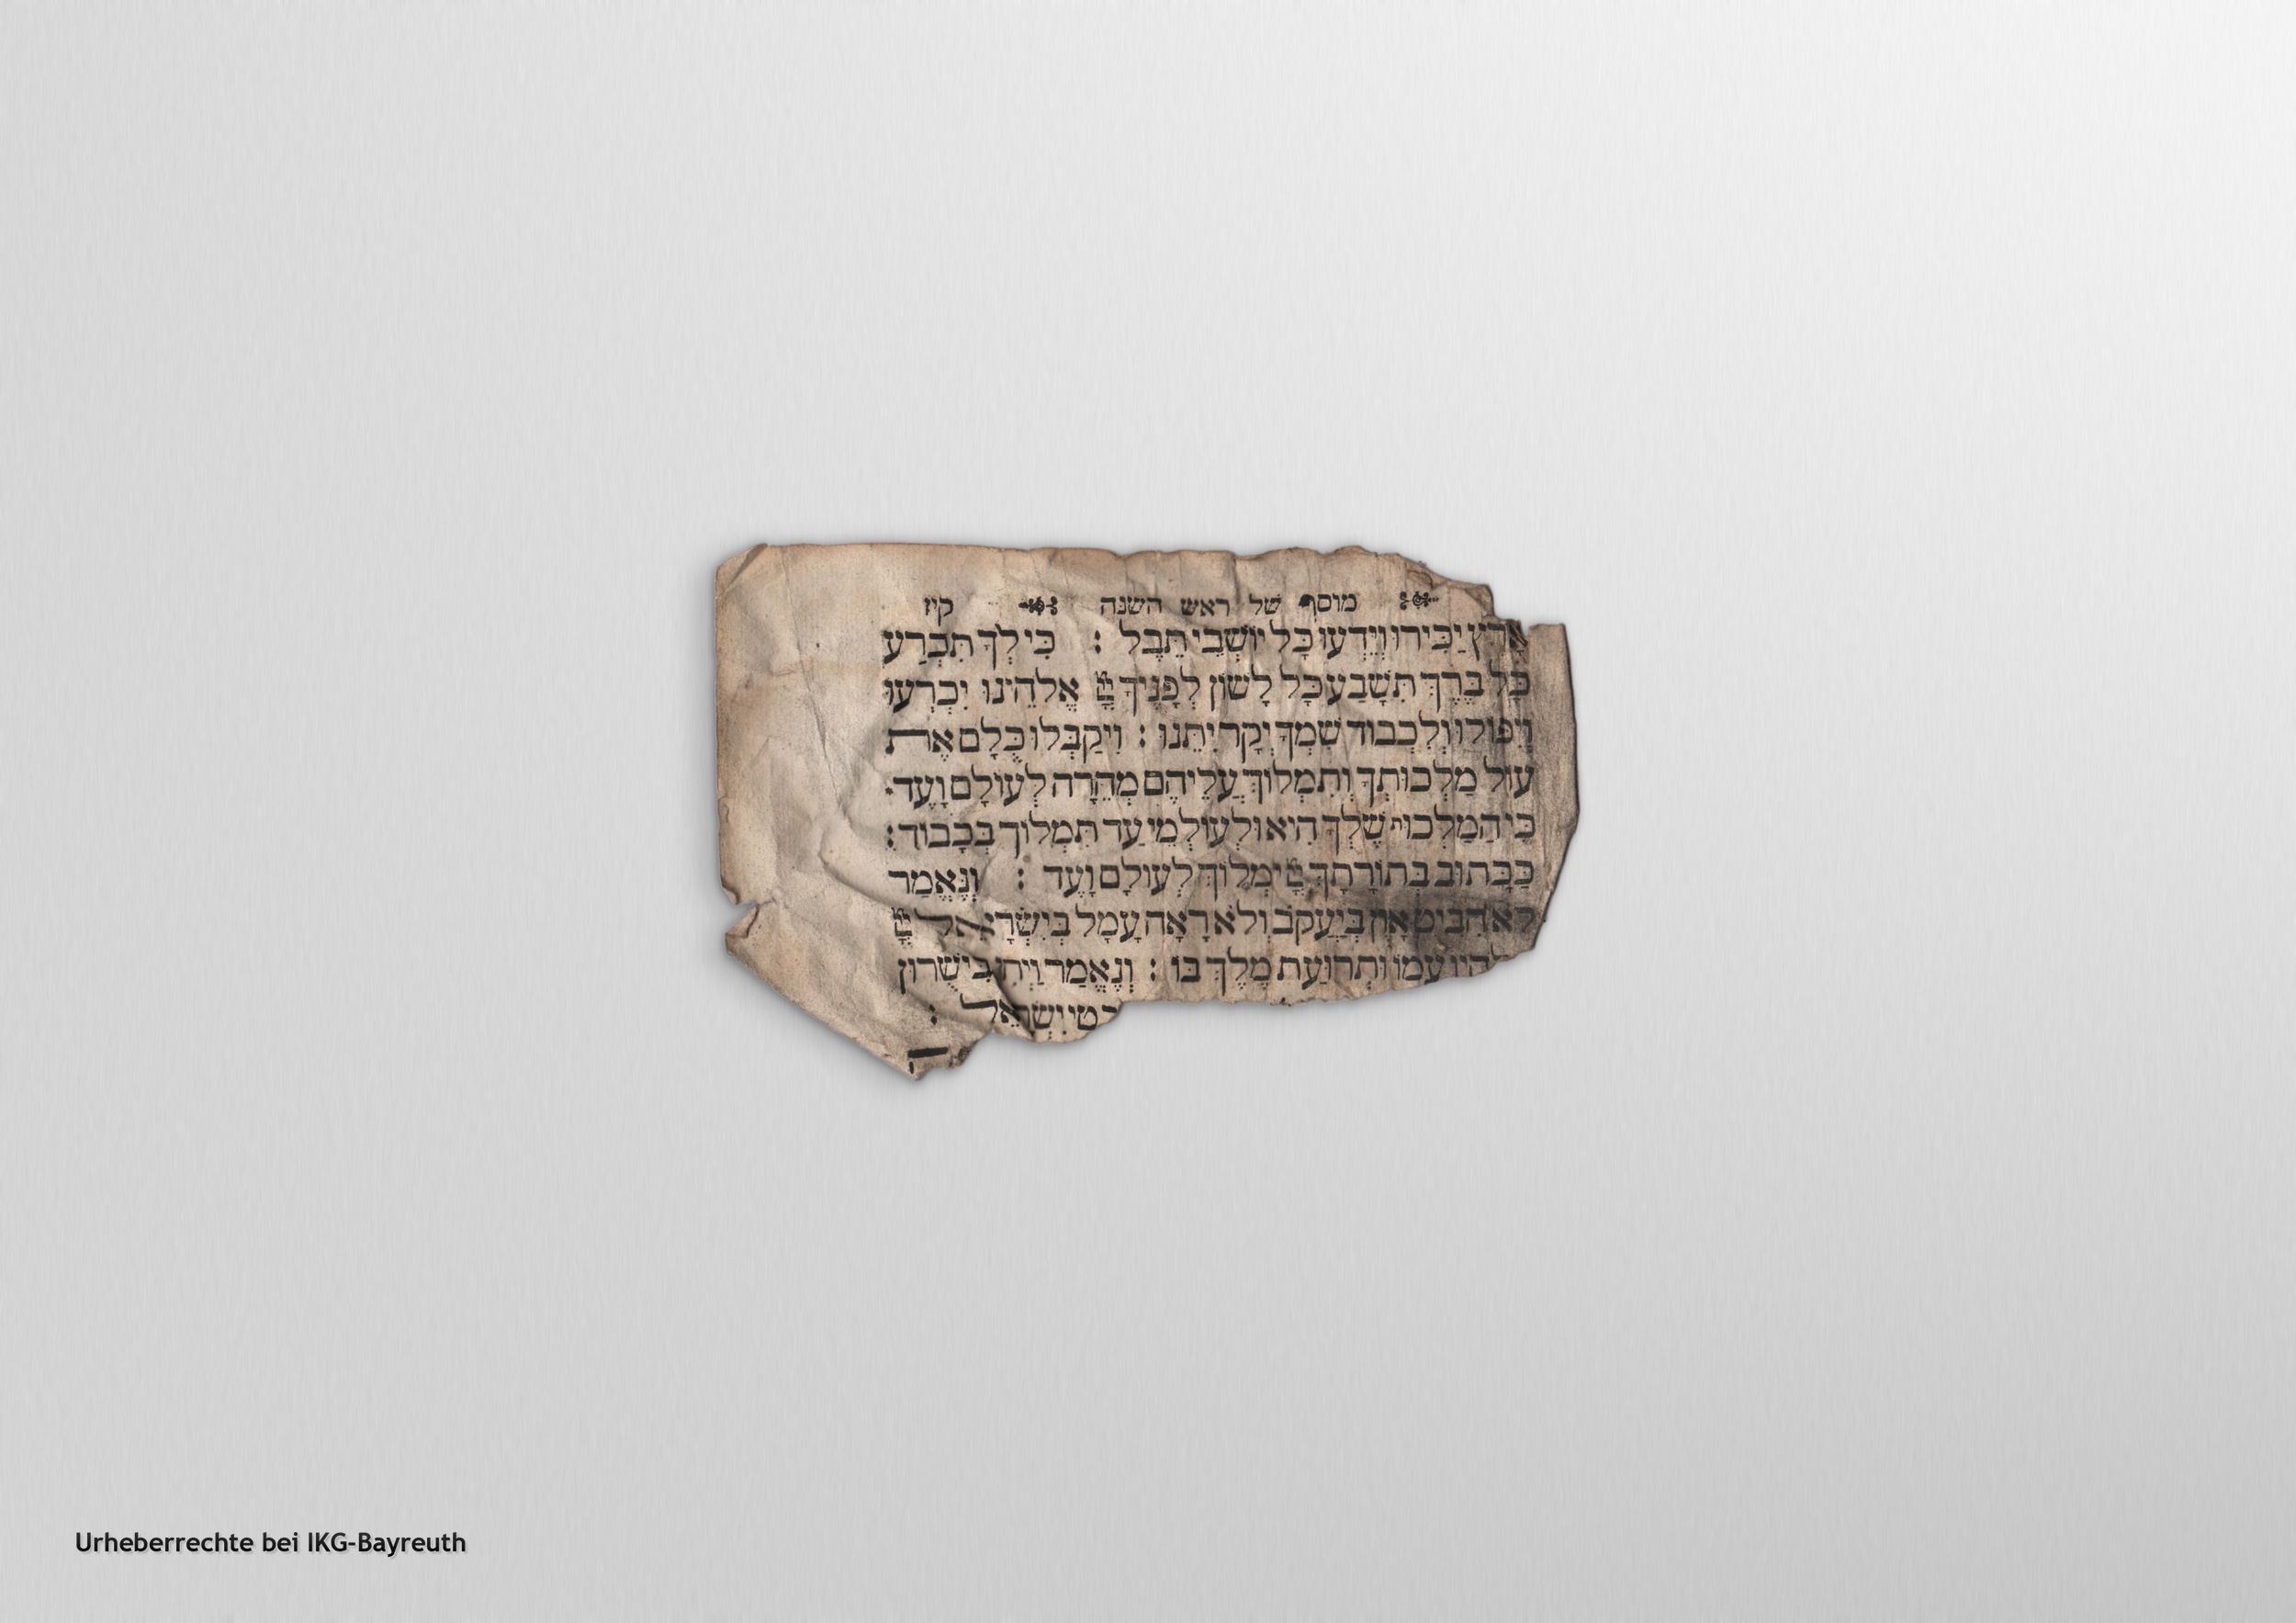 מוסף של ראש השנה קיז
אָרֶץ יַכִּירוּ וְיֵדְעוּ כָּל יוֹשְׁבֵי תֵבֵל : כִּי לְךָ תִּכְרַע
כָּל בֶּרֶךְ תִּשָּׁבַע כָּל לָשׁוֹן לְפָנֶיךָ יְיָ אֱלֹהֵינוּ יִכְרְעוּ
וְיִפּוֹלוּ וְלִכְבוֹד שִׁמְךָ יְקָר יִתֵּנוּ : וִיקַבְּלוּ כֻלָּם אֶת
עוֹל מַלְכוּתְךָ וְתִמְלוֹךְ עֲלֵיהֶם מְהֵרָה לְעוֹלָם וָעֶד.
כִּי הַמַּלְכוּת שֶׁלְּךָ הִיא וּלְעוֹלְמֵי עַד תִּמְלוֹךְ בְּכָבוֹד:
כַּכָּתוּב בְּתוֹרָתֶךָ יְיָ יִמְלוֹךְ לְעוֹלָם וָעֶד : וְנֶאֱמַר
לֹא הִבִּיט אָוֶן בְּיַעֲקֹב וְלֹא רָאָה עָמָל בְּיִשְׂרָאֵל יְיָ
עִמּוֹ וּתְרוּעַת מֶלֶךְ בּוֹ : וְנֶאֱמַר וַיְהִי בִישֻׁרוּן
יִשְׂרָאֵל :
Urheberrechte bei IKG-Bayreuth